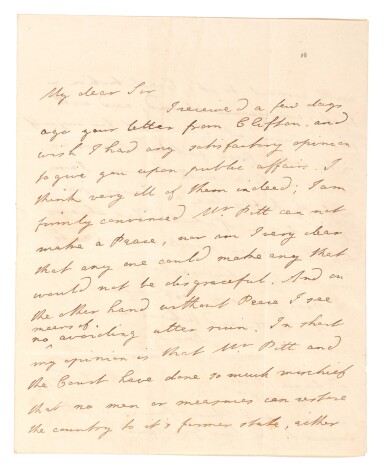 My dear Sir
I received a few days
ago your letter from Clifton. and
wish I had any satisfactory opinion
to give you upon public affairs. I
think very ill of them indeed; I am
firmly convinced Mr. Pitt can not
make a Peace, nor am I very clear
that any one could make any that
would not be disgraceful. And on
the other hand without Peace I see
means of
no avoiding utter ruin. In short
my opinion is that Mr. Pitt and
the Court have done so much mischief
that no men or measures can restore
the country to it's former state, either